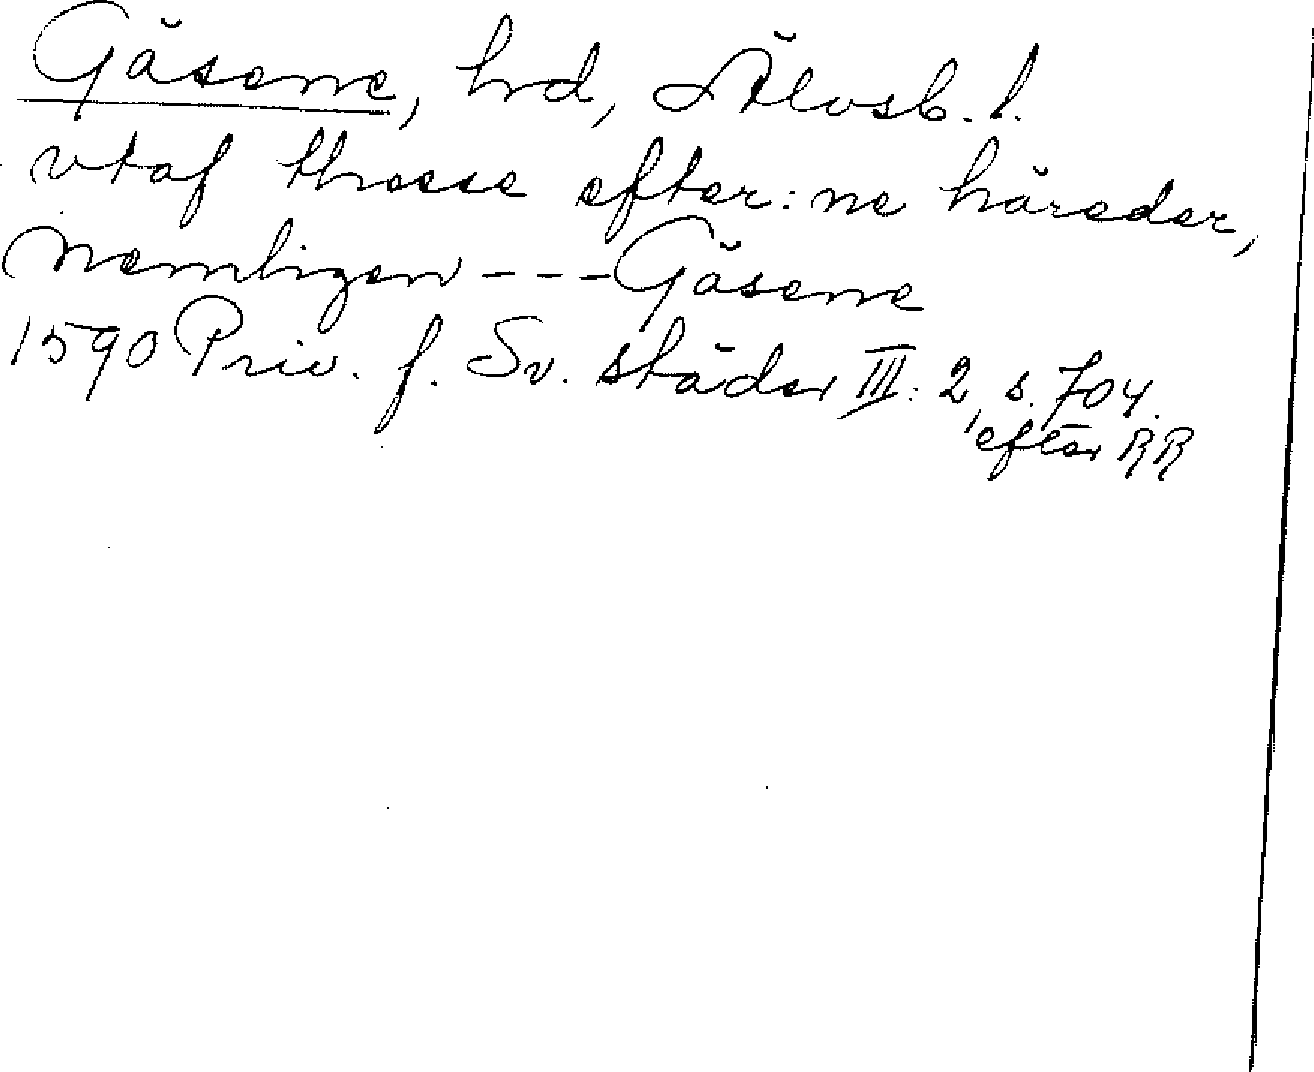 Gäsene, hrd, Älvsb. l.
vtaf thesse efter:ne häreder,
Nemligen --- Gäsene
1590 Priv. f. Sv. städer III: 2, s. 704.
efter RR